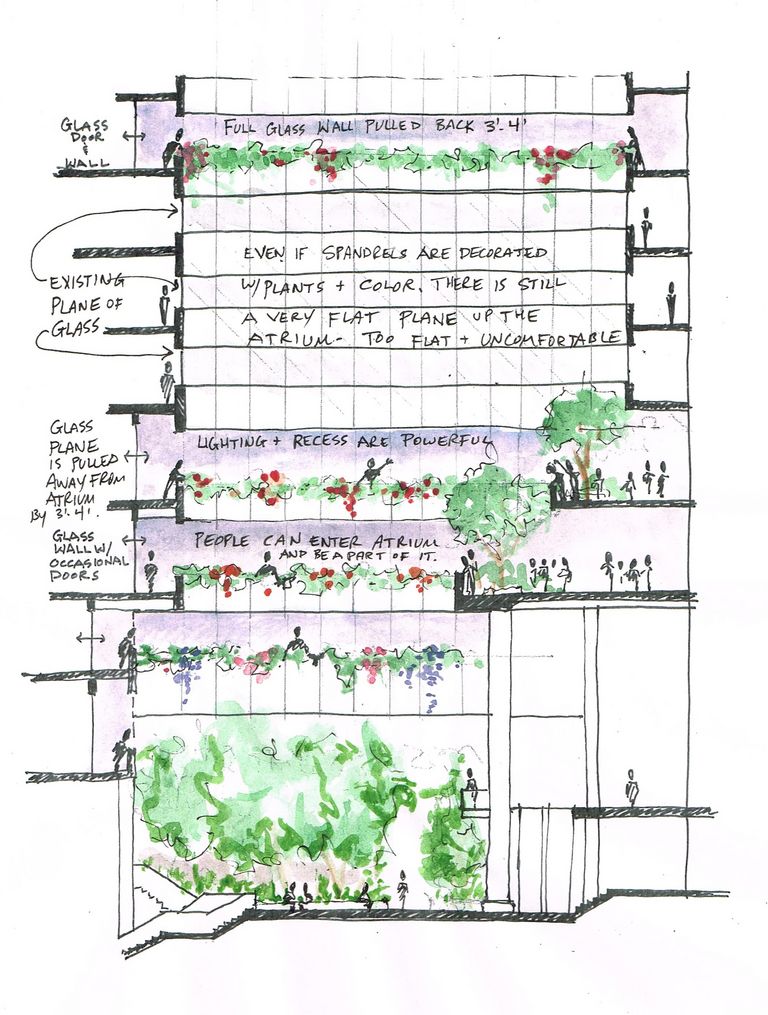 GLASS
DOOR
&
WALL
FULL GLASS WALL PULLED BACK 3'-4'
EXISTING
PLANE OF
GLASS
EVEN IF SPANDRELS ARE DECORATED
W/PLANTS + COLOR, THERE IS STILL
A VERY FLAT PLANE UP THE
ATRIUM- TOO FLAT + UNCOMFORTABLE
GLASS
PLANE
IS PULLED
AWAY FROM
ATRIUM
BY 3'-4'.
LIGHTING + RECESS ARE POWERFUL
GLASS
WALL W/
OCCASIONAL
DOORS
PEOPLE CAN ENTER ATRIUM
AND BE A PART OF IT.